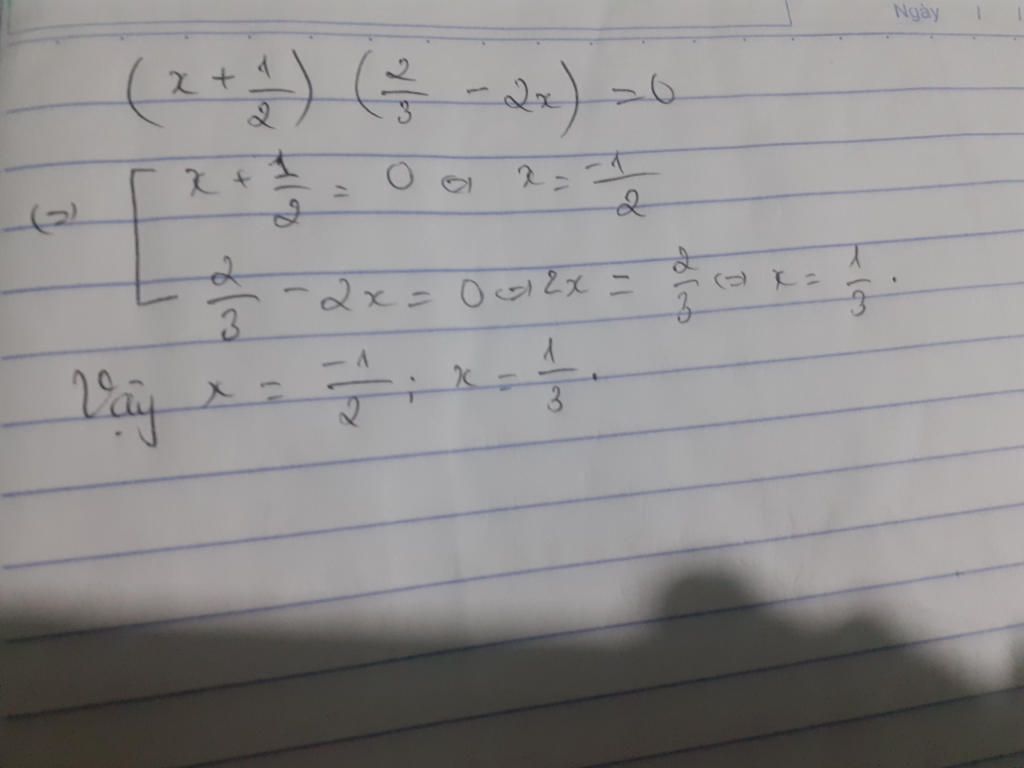 Ngày / /
(x + 1/2) (2/3 - 2x) = 0
⇔ [ x + 1/2 = 0 ⇔ x = -1/2
2/3 - 2x = 0 ⇔ 2x = 2/3 ⇔ x = 1/3.
Vậy x = -1/2; x = 1/3.